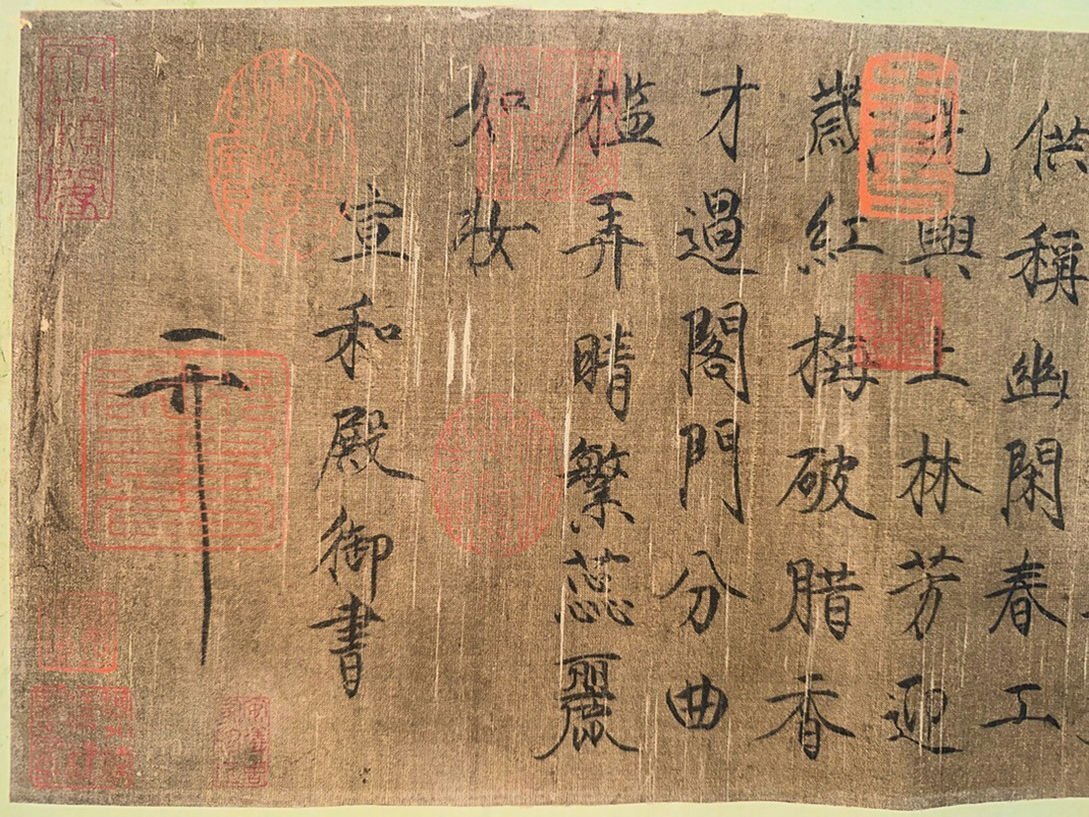 供稱幽閑春工
先與上林芳迎
歲紅梅破腊香
才過閣門分曲
檻弄晴繁蕊麗
如妝
宣和殿御書